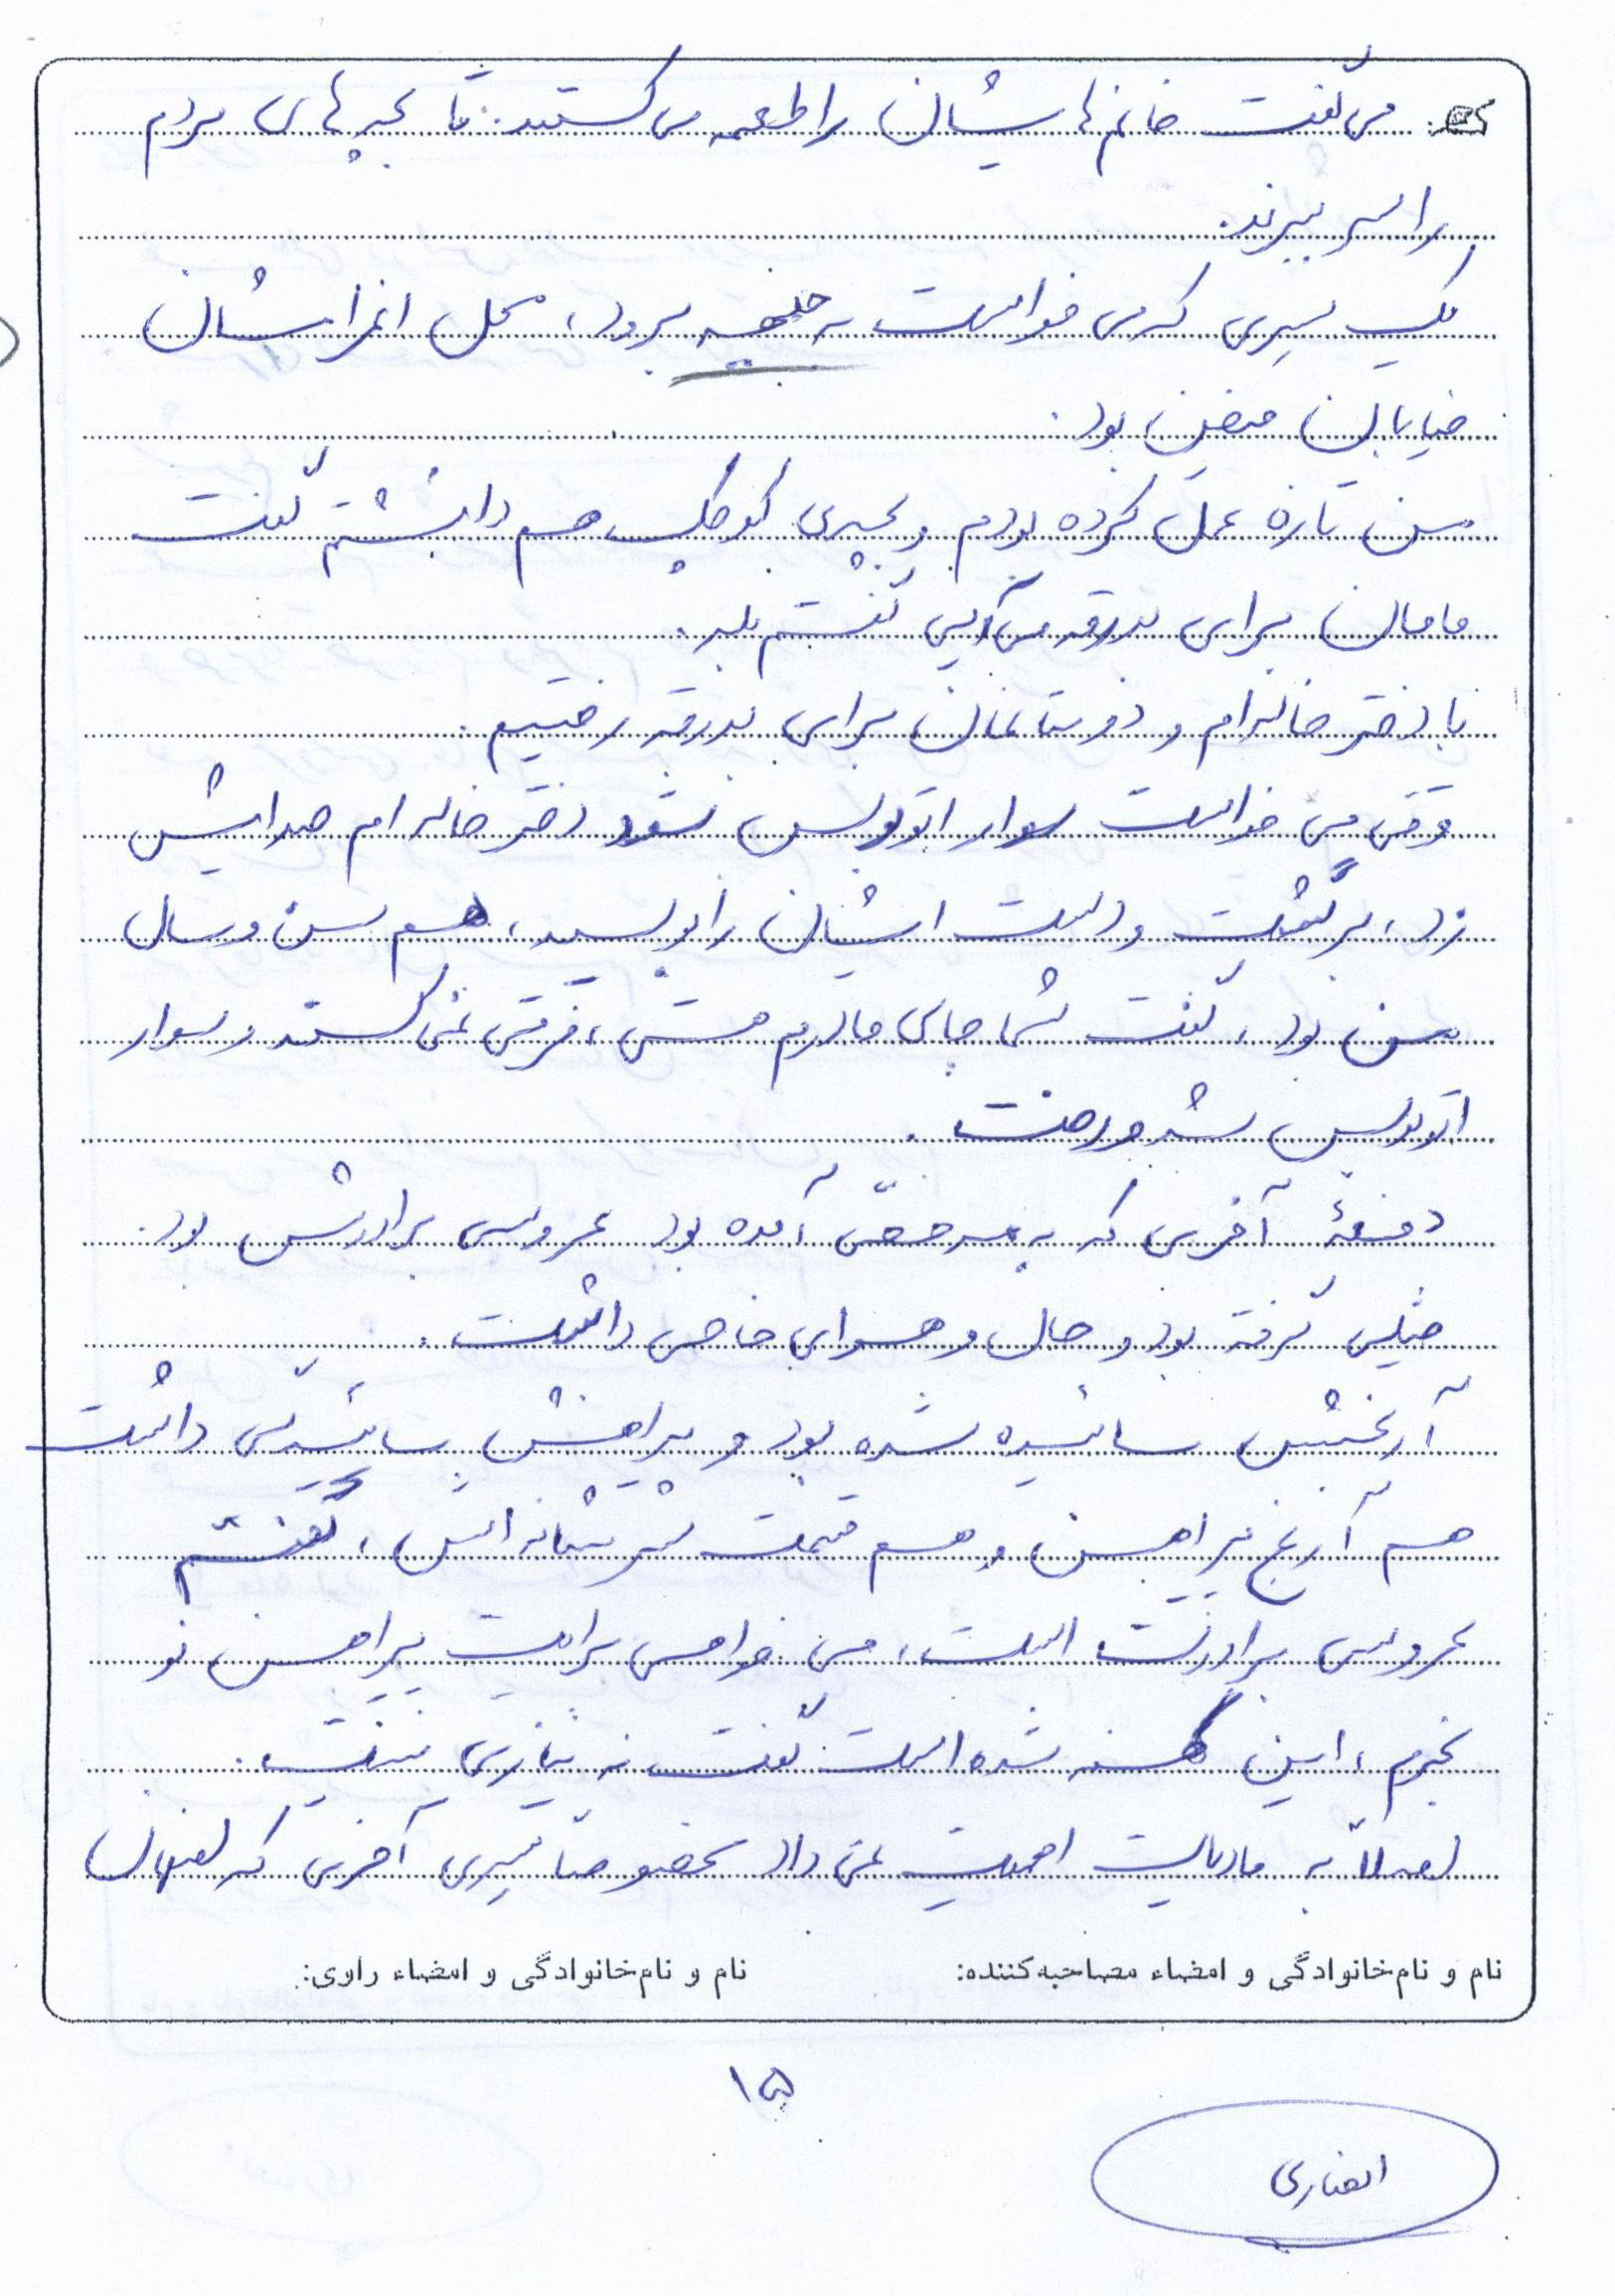 می گفت خانم هایشان را طعمه می کنند تا بچه های مردم
را سر ببرند.
یک سری که می خواست به جبهه برود، محل اعزامشان
خیابان بود.
من تازه عمل کرده بودم و بچه ی کوچک هم داشتم گفت
مامان برای بدرقه می آیی گفتم بله.
با دختر خاله ام و دوستانمان برای بدرقه رفتیم.
وقتی می خواست سوار اتوبوس شود دختر خاله ام صدایش
زد، برگشت و دست ایشان را بوسید، هم سن و سال
من بود، گفت شما جای مادرم هستی، فرقی نمی کند و سوار
اتوبوس شد و رفت.
دفعهٔ آخری که به مرخصی آمده بود عروسی برادرش بود.
خیلی گرفته بود و حال و هوای خاصی داشت.
آرنجش سائیده شده بود و پیراهنش سائیدگی داشت
هم آرنج پیراهن و هم قسمت سرشانه اش، گفتم
عروسی برادرت است، می خواهی برایت پیراهن نو
بخرم، این کهنه شده است گفت نه نیازی نیست.
اصلاً به مادیات اهمیت نمی داد بخصوصاً سری آخری که
نام و نام‌خانوادگی و امضاء مصاحبه‌کننده: نام و نام‌خانوادگی و امضاء راوی:
۱۵
انصاری